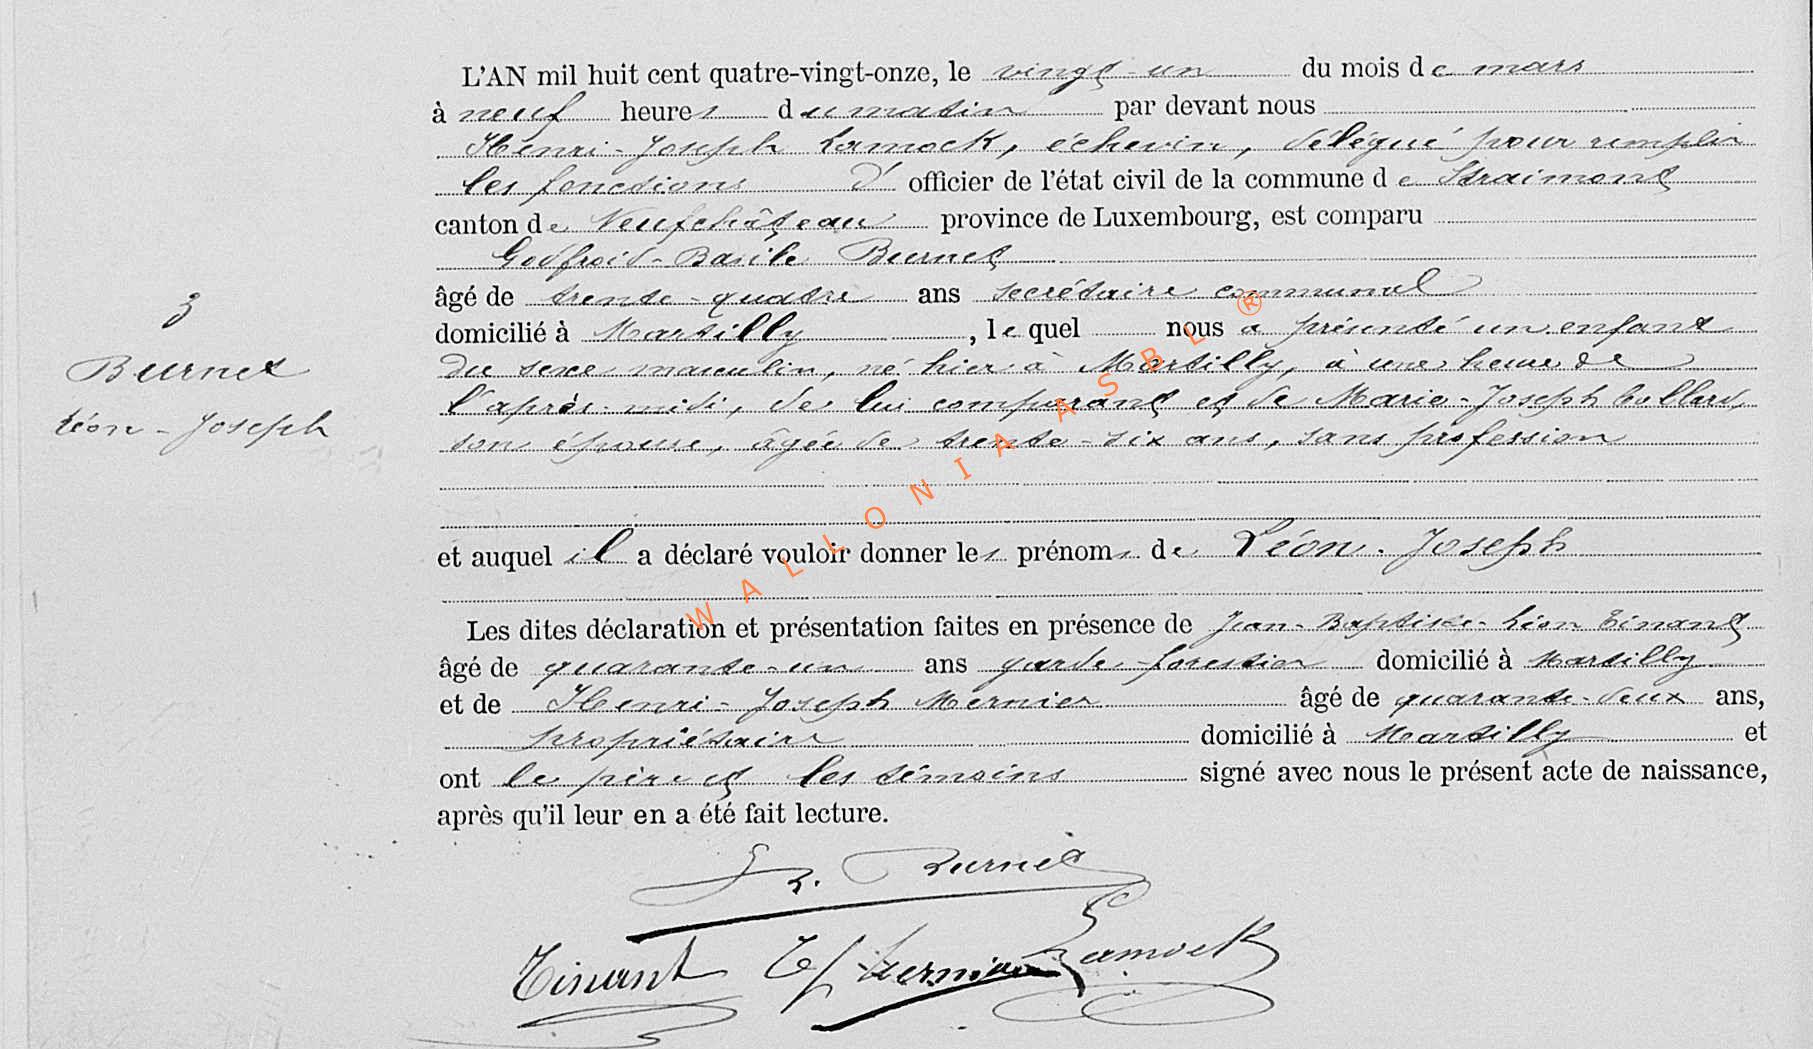 L'AN mil huit cent quatre-vingt-onze, le vingt-un du mois de mars
à neuf heures du matin par devant nous
Henri-Joseph Lamock, échevin, délégué pour remplir
les fonctions d'officier de l'état civil de la commune de Straimont
canton de Neufchâteau province de Luxembourg, est comparu
Godfroid-Basile Burnet
âgé de trente-quatre ans secrétaire communal
domicilié à Martilly, le quel nous a présenté un enfant
du sexe masculin, né hier à Martilly, à une heure de
l'après-midi, de lui comparant et de Marie-Joseph Collard,
son épouse, âgée de trente-six ans, sans profession
et auquel il a déclaré vouloir donner les prénoms de Léon-Joseph
Les dites déclaration et présentation faites en présence de Jean-Baptiste-Léon Tinant
âgé de quarante-un ans garde-forestier domicilié à Martilly
et de Henri-Joseph Mernier âgé de quarante-deux ans,
propriétaire domicilié à Martilly et
ont le père et les témoins signé avec nous le présent acte de naissance,
après qu'il leur en a été fait lecture.
3
Burnet
Léon-Joseph
Burnet
Tinant Mernier Lamock
WALLONIA ASBL ®